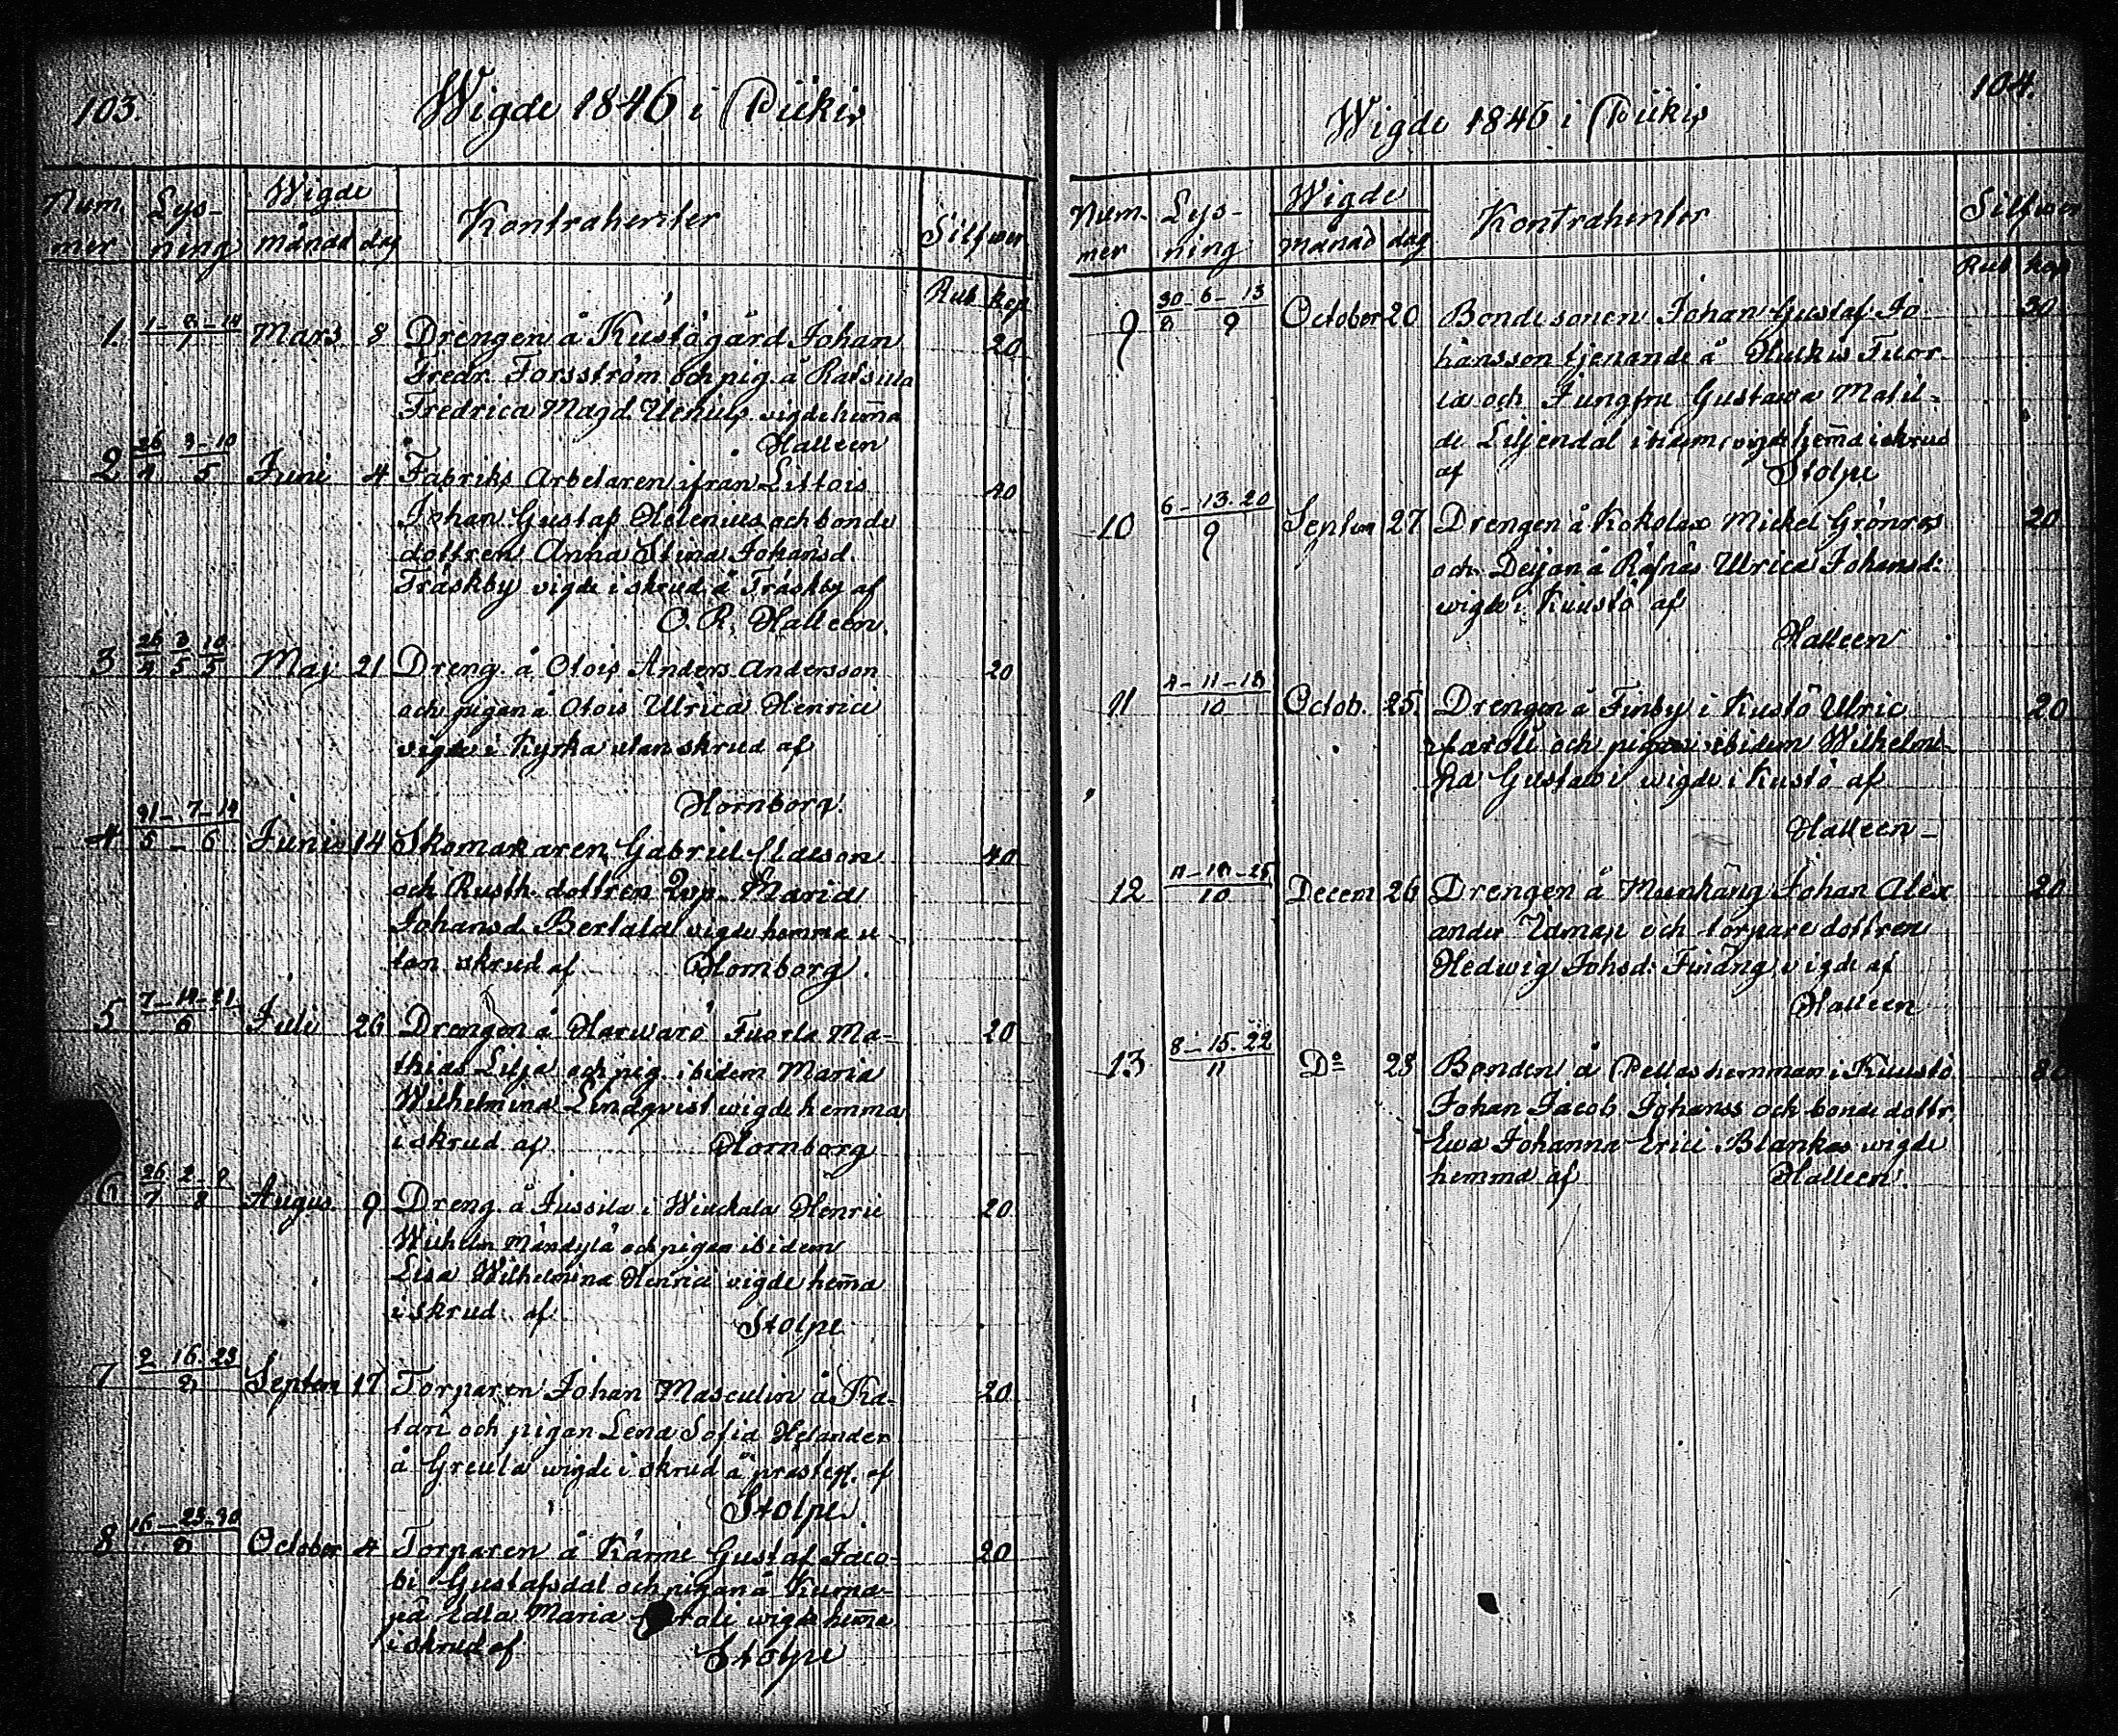 103.
Wigde 1846 i Piikis
Num-
mer
Lys-
ning
Wigde
månad dag
Kontrahenter
Silfwer
Rub. kop
1. 1-8-14 Mars 8 Drengen å Kustögård Johan 20
Fredr. Forsström och pig. å Raisula
Fredrica Magd. vigde hem̄a
Halleen
2 26/4 3-10/5 Juni 4 Fabriks Arbetaren ifrån Littois 40
Johan Gustaf Helenius och bonde
dottren Anna Stina Johansd.
Träskby vigde i skrud å Träskby af
C. R. Halleen
3 26/4 3/5 10/5 Maj 21 Dreng. å Otois Anders Andersson 20
och pigan å Otois Ulrica Henrici
vigde i Kyrka utan skrud af
Hornborg.
4 31-7-14 5-6 Junii 14 Skomakaren Gabriel 40
och Rusth. dottren Maria
Johansd. Bertala vigde hemma u-
tan skrud af Hornborg.
5 7-14-21/6 Juli 26 Drengen å Harwarö Tuorla Ma- 20
thias Lilja och pig. ibidem Maria
Wilhelmina Lindqvist wigde hemma
i skrud af Hornborg
6 26/7 2-9/8 Augus. 9 Dreng. å Jussila i Henric 20
Wilhelm och pigan ibidem
Lisa Wilhelmina Henrici vigde hem̄a
i skrud af Stolpe
7 2 16-23/8 Septem 17 Torparen Johan Masculin å Ka- 20
tari och pigan Lena Sofia Helander
å Greula wigde i skrud å prosteg. af
Stolpe
8 16-23-30/8 October 4 Torparen å Kärme Gustaf Jaco- 20
bi Gustafsdal och pigan å Kurna-
pä Edla Maria wigde hem̄a
i skrud af Stolpe
104.
Wigde 1846 i Piikis
Num-
mer
Lys-
ning
Wigde
månad dag
Kontrahenter
Silfwer
Rub kop
9 30/8 6-13/9 October 20 Bondesonen Johan Gustaf Jo- 30
hansson tjenande å Tuor-
la och Jungfru Gustawa Matil-
da Liljendal ibidem, vigde hem̄a i skrud
af Stolpe
10 6-13-20/9 Septem 27 Drengen å Kokolax Mickel Grönroos 20
och Deijan å Räfnäs Ulrica Johansd:
wigde i Kuustö af
Halleen
11 4-11-18/10 Octob. 25. Drengen å Finby i Kustö Ulric 20
Caroli och pigan ibidem Wilhelmi-
na Gustawi wigde i Kustö af
Halleen
12 11-18-25/10 Decem 26 Drengen å Munkäng Johan Alex 20
ander Idman och torpare dottren
Hedwig Johsd: Finäng vigde af
Halleen
13 8-15-22/11 Do 28 Bonden å Pellas hemman i Kuustö 80
Johan Jacob Johanss och bonde dottr.
Ewa Johanna Erici Blankas wigde
hemma af Halleen.